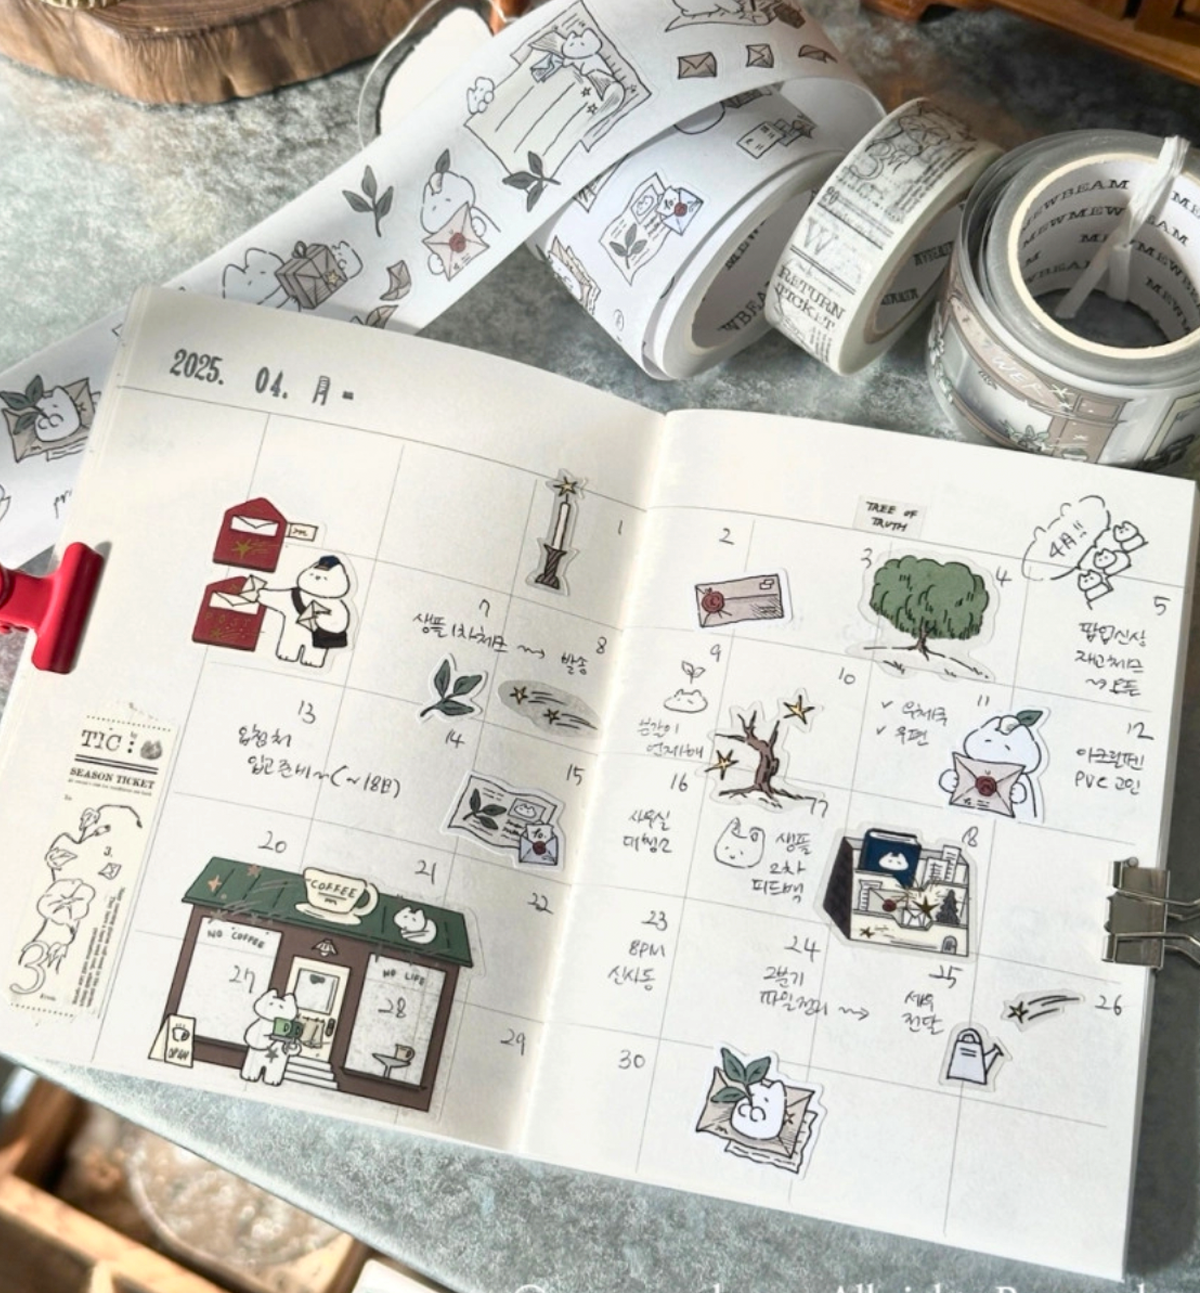 MEWBEAM
MEWMEW
MEWBEAM
RETURN
TICKET
2025. 04. 月
TREE OF
TRUTH
4月!!
1
2
3
4
5
팝업신상
재고체크
7
샘플 1차체크 ~~>
8
발송
9
10
11
✓ 우체국
✓ 우편
12
아크릴펜
PVC 고인
13
입점처
입고준비~(~18日)
14
15
16
사무실
17
샘플
2차
피드백
18
TIC:
SEASON TICKET
20
21
22
COFFEE
NO COFFEE
NO LIFE
OPEN
23
8PM
신사동
24
2분기
파일정리 ~~>
25
세무
전달
26
27
28
29
30